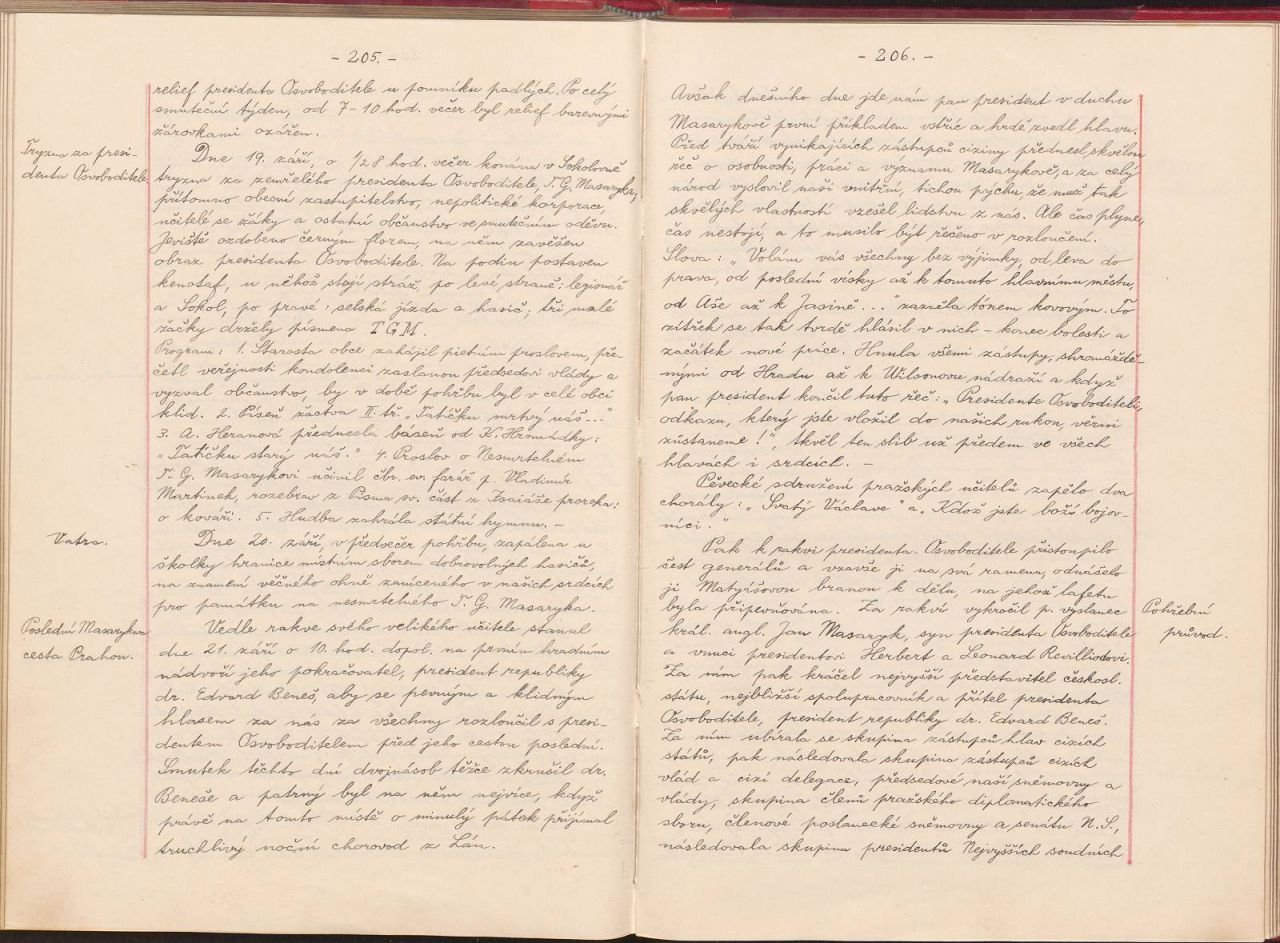 - 205. -
relief presidenta Osvoboditele u pomníku padlých. Po celý
smuteční týden, od 7-10 hod. večer byl relief barevnými
žárovkami ozářen.
Tryzna za presi-
denta Osvoboditele
Dne 19. září, o 1/28 hod. večer konána v Sokolovně
tryzna za zemřelého presidenta Osvoboditele, T. G. Masaryka,
přítomno obecní zastupitelstvo, nepolitické korporace,
učitelé se žáky a ostatní občanstvo ve smutečním oděvu.
Jeviště ozdobeno černým florem, na něm zavěšen
obraz presidenta Osvoboditele. Na podiu postaven
kenotaf, u něhož stojí stráž, po levé straně: legionář
a Sokol, po pravé: selská jízda a hasič, tři malé
žačky držely písmena TGM.
Program: 1. Starosta obce zahájil pietním proslovem, pře-
četl veřejnosti kondolenci zaslanou předsedovi vlády a
vyzval občanstvo, by v době pohřbu byl v celé obci
klid. 2. Píseň žactva II. tř. „Tatíčku mrtvý náš..."
3. A. Heranová přednesla báseň od K. Hromádky:
„Tatíčku starý náš." 4. Proslov o Nesmrtelném
T. G. Masarykovi učinil čbr. ev. farář p. Vladimír
Martinek, rozebrav z Písma sv. část z Izaiáše proroka:
o kováři. 5. Hudba zahrála státní hymnu. -
Vatra.
Dne 20. září, v předvečer pohřbu, zapálena u
školky hranice místním sborem dobrovolných hasičů,
na znamení věčného ohně zaníceného v našich srdcích
pro památku na nesmrtelného T. G. Masaryka.
Poslední Masarykova
cesta Prahou.
Vedle rakve svého velikého učitele stanul
dne 21. září o 10. hod. dopol. na prvním hradním
nádvoří jeho pokračovatel, president republiky
dr. Edvard Beneš, aby se pevným a klidným
hlasem za nás za všechny rozloučil s presi-
dentem Osvoboditelem před jeho cestou poslední.
Smutek těchto dní dvojnásob těžce zkrušil dr.
Beneše a patrný byl na něm nejvíce, když
právě na tomto místě o minulý pátek přijímal
truchlivý noční chorovod z Lán.
- 206. -
Avšak dnešního dne jde nám pan president v duchu
Masarykově první příkladem vstříc a hrdě zvedl hlavu.
Před tváří vynikajících zástupců ciziny přednesl skvělou
řeč o osobnosti, práci a významu Masarykově, a za celý
národ vyslovil naši vnitřní, tichou pýchu, že muž tak
skvělých vlastností vzešel lidstvu z nás. Ale čas plyne,
čas nestojí, a to musilo být řečeno v rozloučení.
Slova: „Volám vás všechny bez vyjimky, od leva do
prava, od poslední vísky až k tomuto hlavnímu městu,
od Aše až k Jasině..." zazněla tónem kovovým. To
zítřek se tak tvrdě hlásil v nich - konec bolesti a
začátek nové práce. Hnula všemi zástupy, shromáždě-
nými od Hradu až k Wilsonovu nádraží a když
pan president končil tuto řeč: „Presidente Osvoboditeli,
odkazu, který jste vložil do našich rukou, věrni
zůstaneme!", tkvěl ten slib už předem ve všech
hlavách i srdcích. -
Pěvecké sdružení pražských učitelů zapělo dva
chorály: „Svatý Václave" a „Kdož jste boží bojov-
níci."
Pak k rakvi presidenta Osvoboditele přistoupilo
šest generálů a vzavše ji na svá ramena, odnášelo
ji Matyášovou branou k dělu, na jehož lafetu
byla připevňována. Za rakví vykročil p. vyslanec
Pohřební
průvod.
král. angl. Jan Masaryk, syn presidenta Osvoboditele
a vnuci presidentovi Herbert a Leonard Revilliodovi.
Za ním pak kráčel nejvyšší představitel českosl.
státu, nejbližší spolupracovník a přítel presidenta
Osvoboditele, president republiky dr. Edvard Beneš.
Za ním ubírala se skupina zástupců hlav cizích
států, pak následovala skupina zástupců cizích
vlád a cizí delegace, předsedové naší sněmovny a
vlády, skupina členů pražského diplomatického
sboru, členové poslanecké sněmovny a senátu N. S.,
následovala skupina presidentů Nejvyšších soudních